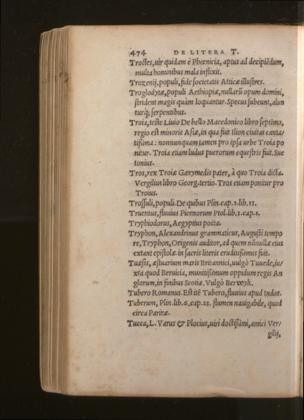 474 DE LITERA T.
Troctes, uir quidam è Phœnicia, aptus ad decipiēdum,
multa hominibus mala inflixit.
Trœzenij, populi, fide societatis Atticæ illustres.
Troglodytæ, populi Aethiopiæ, nullarū opum domini,
strident magis quàm loquantur. Specus subeunt, alun
turq; serpentibus.
Troia, teste Liuio De bello Macedonico libro septimo,
regio est minoris Asiæ, in qua fuit Ilion ciuitas canta-
tissima: nonnunquam tamen pro ipsa urbe Troia po
nitur. Troia etiam ludus puerorum equestris fuit. Sue
tonius.
Tros, rex Troiæ Ganymedis pater, à quo Troia dicta.
Vergilius libro Georg. tertio. Tros etiam ponitur pro
Troius.
Trossuli, populi. De quibus Plin. cap. 2. lib. 33.
Truentus, fluuius Picenorum Ptol. lib. 3. cap. 1.
Tryphiodorus, Aegyptius poëta.
Tryphon, Alexandrinus grammaticus, Augusti tempo
re, Tryphon, Origenis auditor, ad quem nōnullæ eius
extant epistolæ. in sacris literis eruditissimus fuit.
Tuæsis, æstuarium maris Britannici, uulgò Tuuede, iu-
xta quod Beruicia, munitissimum oppidum regis An
glorum, in finibus Scotiæ. Vulgò Beruuyk.
Tubero Romanus. Est & Tubero, fluuius apud Indos.
Tuberum, Plin. lib. 6. cap. 23. flumen nauigabile, quod
circa Paritæ.
Tucca, L. Varus & Plocius, uiri doctissimi, amici Ver-
gilij,